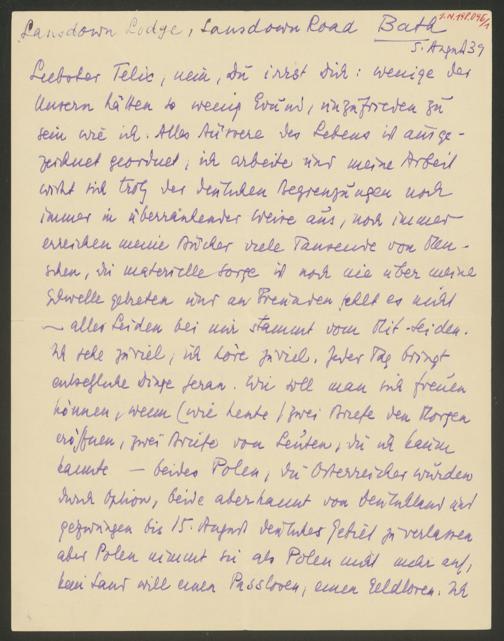 I.N. 198.096/1
Lansdown Lodge, Lansdown Road Bath
5. August 39
Liebster Felix, nein, Du irrst Dich: wenige der
Unsern hätten so wenig Grund, unzufrieden zu
sein wie ich. Alles Äussere des Lebens ist ausge-
zeichnet geordnet, ich arbeite und meine Arbeit
wirkt sich trotz der deutschen Begrenzungen noch
immer in überraschender Weise aus, noch immer
erreichen meine Bücher viele Tausende von Men-
schen, die materielle Sorge ist noch nie über meine
Schwelle getreten und an Freunden fehlt es nicht
— alles Leiden bei mir stammt vom Mit-Leiden.
Ich sehe zuviel, ich höre zuviel. Jeder Tag bringt
entsetzliche Dinge heran. Wie soll man sich freuen
können, wenn (wie heute) zwei Briefe den Morgen
eröffnen, zwei Briefe von Leuten, die ich kaum
kannte — beides Polen, die Österreicher wurden
durch Option, beide aberkannt von Deutschland und
gezwungen bis 15. August deutsches Gebiet zu verlassen
aber Polen nimmt sie als Polen nicht mehr auf,
kein Land will einen Passlosen, einen Geldlosen. Ich